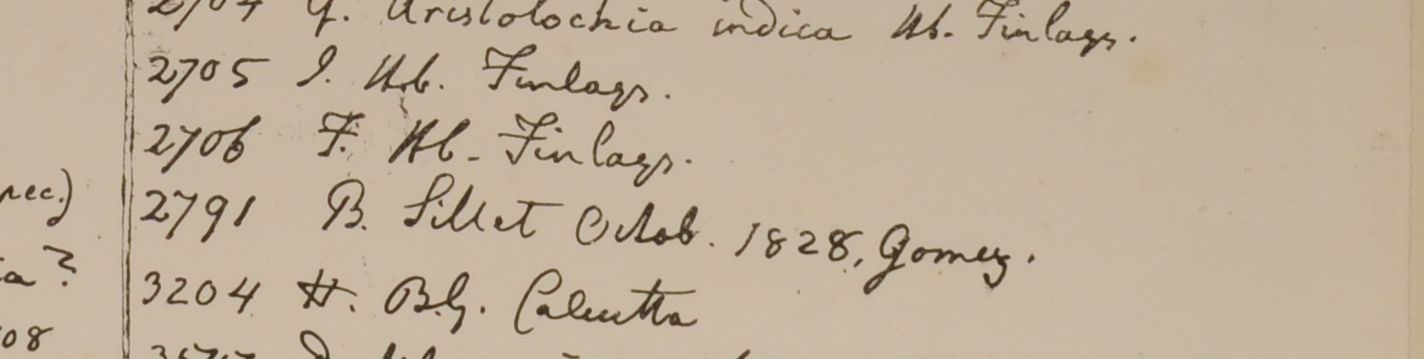 2704 G. Aristolochia indica Hb. Finlays.
2705 I. Hb. Finlays.
2706 F. Hb. Finlays.
2791 B. Sillet Octob. 1828, Gomez.
3204 H. B.G. Calcutta
08